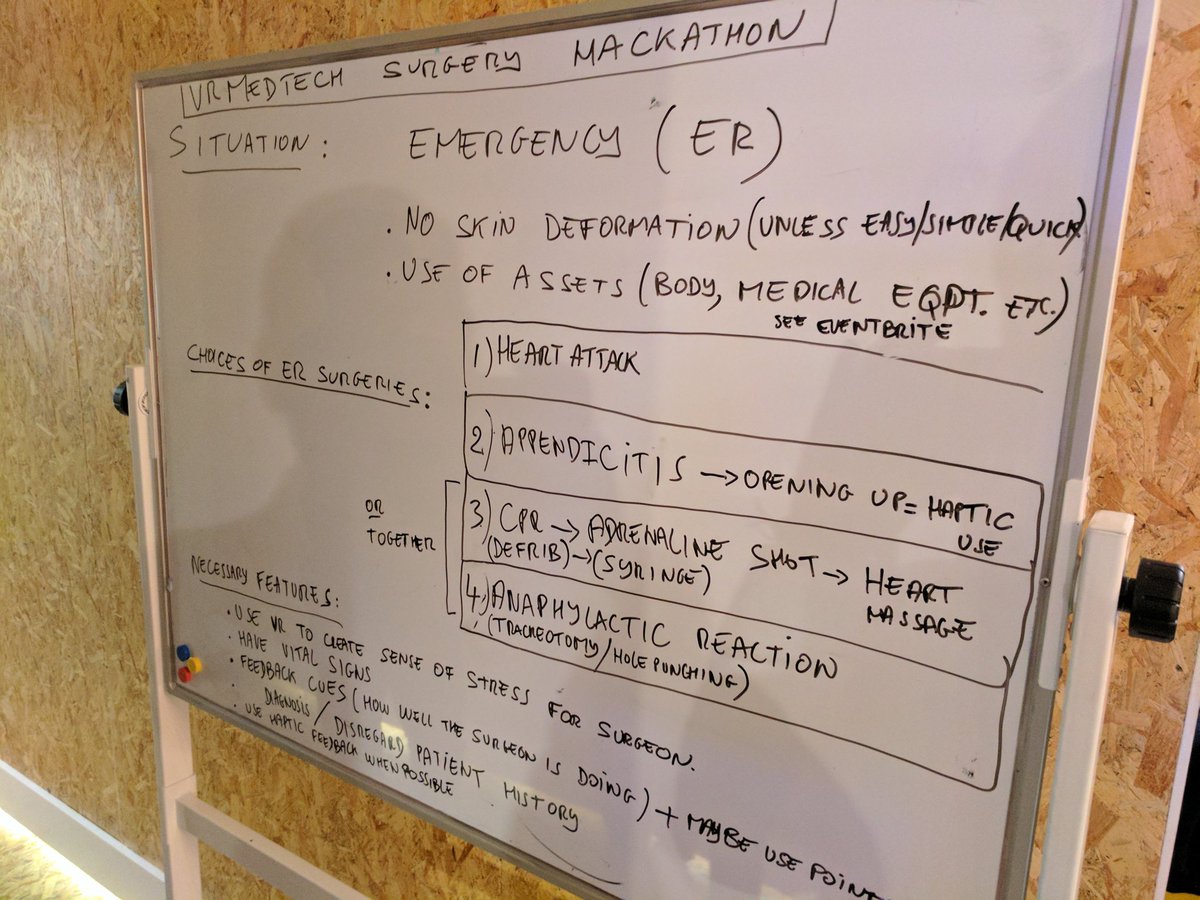 VR MEDTECH SURGERY MACKATHON
SITUATION: EMERGENCY (ER)
. NO SKIN DEFORMATION (UNLESS EASY/SIMPLE/QUICK)
. USE OF ASSETS (BODY, MEDICAL EQPT. ETC.)
SEE EVENTBRITE
CHOICES OF ER SURGERIES:
1) HEART ATTACK
2) APPENDICITIS → OPENING UP = HAPTIC
USE
OR
TOGETHER
3) CPR → ADRENALINE SHOT → HEART
MASSAGE
(DEFRIB) → (SYRINGE)
4) ANAPHYLACTIC REACTION
(TRACHEOTOMY/HOLE PUNCHING)
NECESSARY FEATURES:
. USE VR TO CREATE SENSE OF STRESS FOR SURGEON.
. HAVE VITAL SIGNS
. FEEDBACK CUES (HOW WELL THE SURGEON IS DOING) + MAYBE USE POINT
. DIAGNOSIS / DISREGARD PATIENT HISTORY
. USE HAPTIC FEEDBACK WHEN POSSIBLE